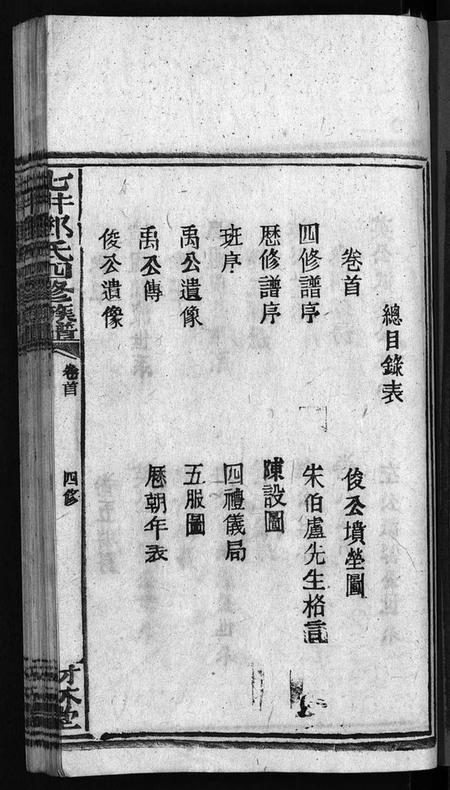 總目錄表
卷首
俊公墳塋圖
四修譜序
朱伯盧先生格言
歷修譜序
陳設圖
班序
四禮儀局
禹公遺像
五服圖
禹公傳
歷朝年表
俊公遺像
七井鄒氏四修族譜
卷首
四修